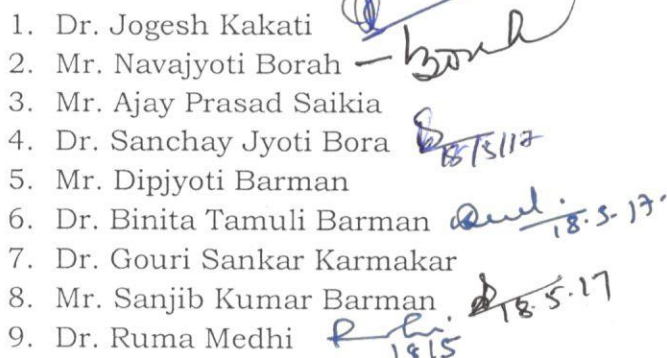 1. Dr. Jogesh Kakati
2. Mr. Navajyoti Borah — Borah
3. Mr. Ajay Prasad Saikia
4. Dr. Sanchay Jyoti Bora 18/5/17
5. Mr. Dipjyoti Barman
6. Dr. Binita Tamuli Barman 18.5.17.
7. Dr. Gouri Sankar Karmakar
8. Mr. Sanjib Kumar Barman 18.5.17
9. Dr. Ruma Medhi 18/5